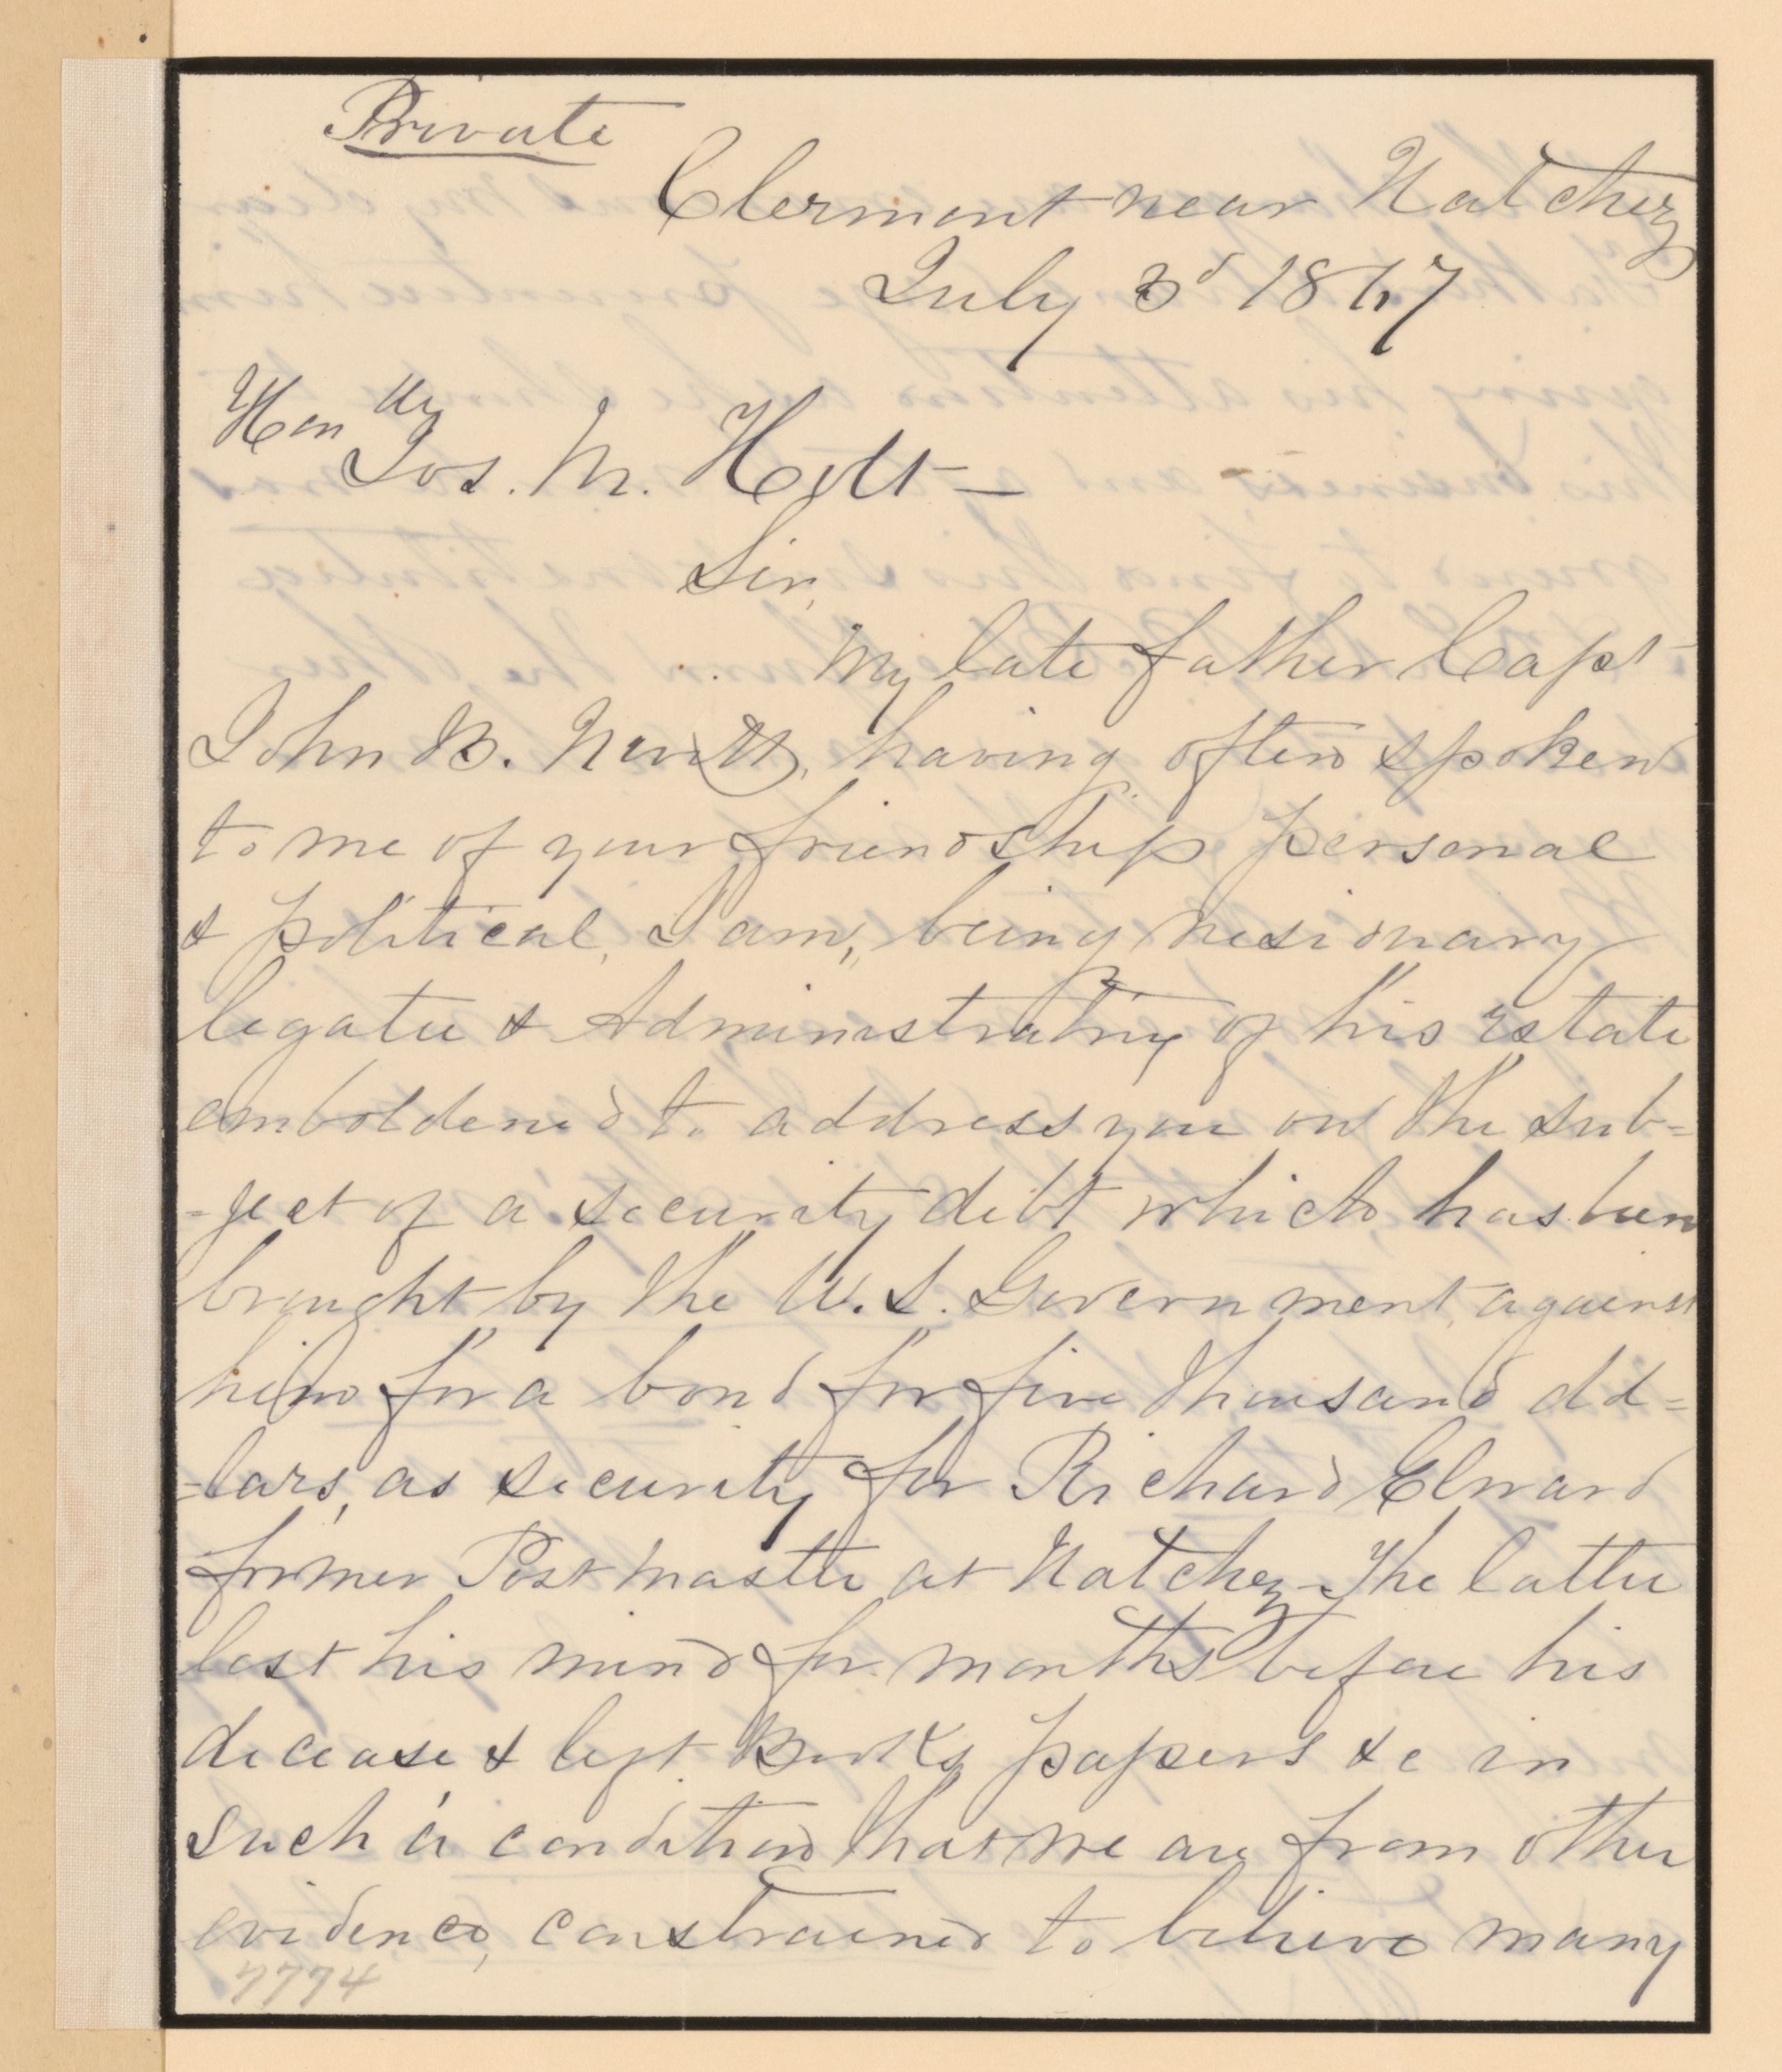 Private
Clermont near Natchez
July 3d 1867
Honbly
Jos. M. Holt —
Sir,
My late father Capt
John B. Nevitt, having often spoken
to me of your friendship personal
& political, I am, being residuary
legatee & Administratrix of his estate
emboldened to address you on the sub=
=ject of a security debt which, has been
brought by the U.S. Government, against
him for a bond for five thousand dol=
=lars, as security for Richard Elward
former Postmaster at Natchez - The latter
lost his mind for months before his
decease & left Books, papers &c in
such a condition that we are from other
evidence, constrained to believe many
7774